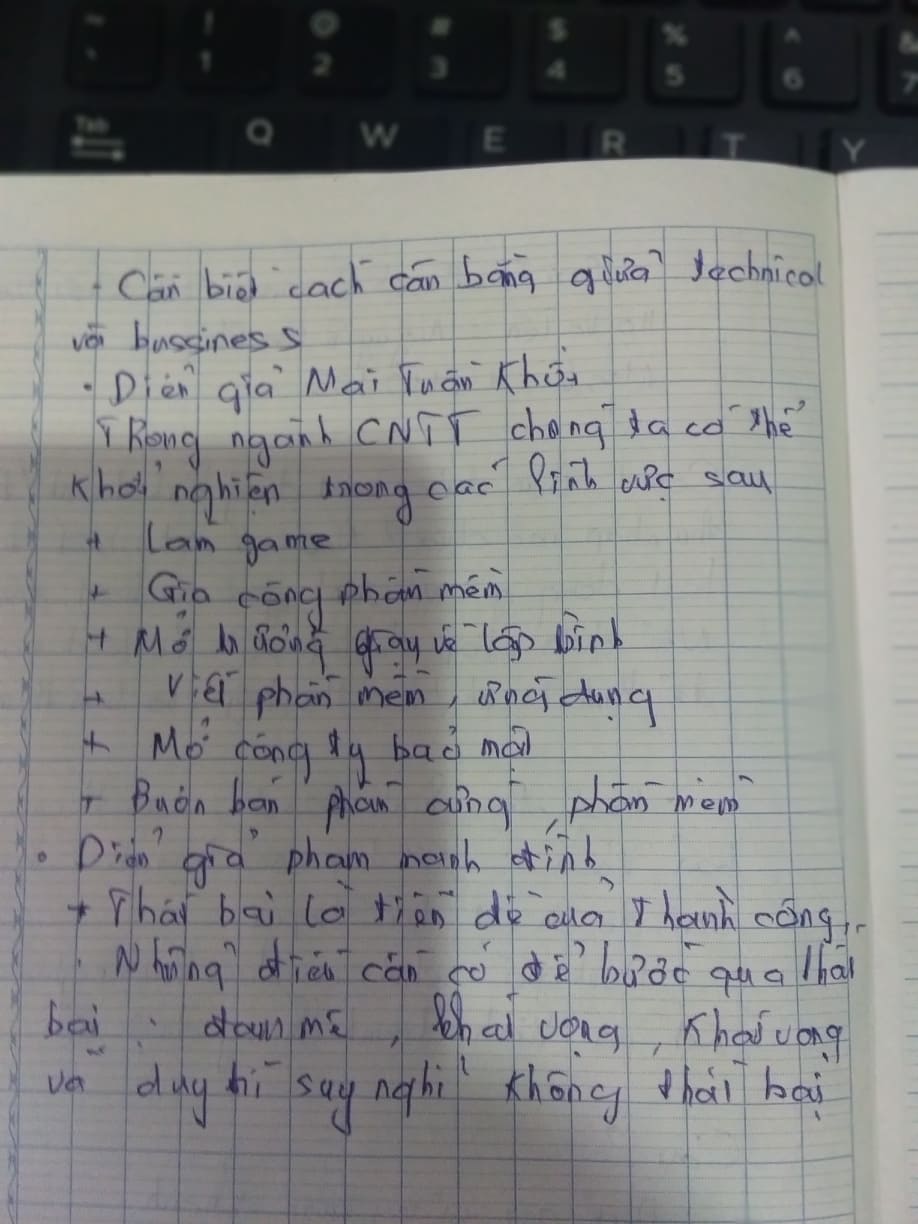 ~ ! @ # $ % ^ &
` 1 2 3 4 5 6 7
Tab Q W E R T Y
- Cần biết cách cân bằng giữa technical
với bussiness
• Diễn giả Mai Tuấn Khôi
TRong ngành CNTT chúng ta có thể
khởi nghiệp trong các lĩnh vực sau
+ Làm game
+ Gia công phần mềm
+ Mở trường dạy về lập trình
+ Viết phần mềm, ứng dụng
+ Mở công ty bảo mật
+ Buôn bán phần cứng, phần mềm
• Diễn giả phạm mạnh
+ Thất bại là tiền đề của Thành công,
. Những điều cần có để bước qua thất
bại : đam mê, khát vọng, Khát vọng
và duy trì suy nghĩ không thất bại